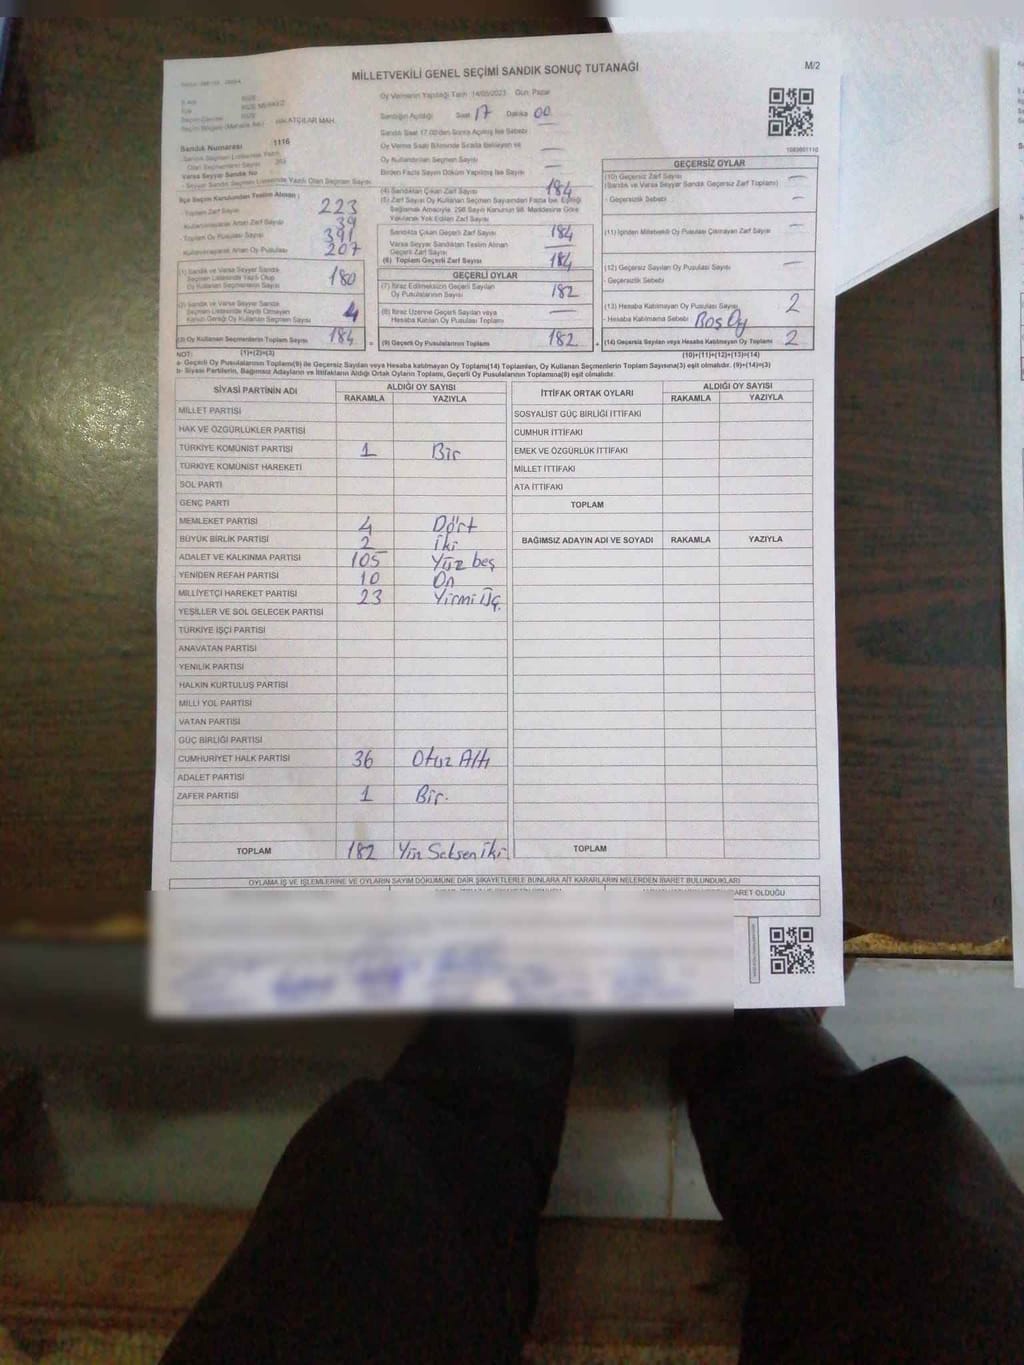 MİLLETVEKİLİ GENEL SEÇİMİ SANDIK SONUÇ TUTANAĞI
M/2
RİZE
RİZE MERKEZ
RİZE
ATÇILAR MAH.
Sandık Numarası 1116
Varsa Seyyar Sandık No
- Seyyar Sandık Seçmen Listesinde Yazılı Olan Seçmen Sayısı
İlçe Seçim Kurulundan Teslim Alınan;
- Toplam Zarf Sayısı 223
Kullanılmayarak Artan Zarf Sayısı 39
- Toplam Oy Pusulası Sayısı 391
Kullanılmayarak Artan Oy Pusulası 207
(1) Sandık ve Varsa Seyyar Sandık Seçmen Listesinde Yazılı Olup Oy Kullanan Seçmenlerin Sayısı 180
(2) Sandık ve Varsa Seyyar Sandık Seçmen Listesinde Kayıtlı Olmayan Kanun Gereği Oy Kullanan Seçmen Sayısı 4
(3) Oy Kullanan Seçmenlerin Toplam Sayısı 184
(1)+(2)=(3)
Oy Vermenin Yapıldığı Tarih 14/05/2023 Gün: Pazar
Sandığın Açıldığı Saat 17 Dakika 00
Sandık Saat 17.00'den Sonra Açılmış İse Sebebi
Oy Verme Saati Bitiminde Sırada Bekleyen ve
Oy Kullandırılan Seçmen Sayısı —
Birden Fazla Sayım Döküm Yapılmış İse Sayısı —
(4) Sandıktan Çıkan Zarf Sayısı 184
(5) Zarf Sayısı Oy Kullanan Seçmen Sayısından Fazla İse, Eşitliği
Sağlamak Amacıyla, 298 Sayılı Kanunun 98. Maddesine Göre
Yakılarak Yok Edilen Zarf Sayısı
Sandıkta Çıkan Geçerli Zarf Sayısı 184
Varsa Seyyar Sandıktan Teslim Alınan
Geçerli Zarf Sayısı —
(6) Toplam Geçerli Zarf Sayısı 184
GEÇERLİ OYLAR
(7) İtiraz Edilmeksizin Geçerli Sayılan Oy Pusulalarının Sayısı 182
(8) İtiraz Üzerine Geçerli Sayılan veya Hesaba Katılan Oy Pusulası Toplamı —
(9) Geçerli Oy Pusulalarının Toplamı 182
1083601110
GEÇERSİZ OYLAR
(10) Geçersiz Zarf Sayısı —
(Sandık ve Varsa Seyyar Sandık Geçersiz Zarf Toplamı)
- Geçersizlik Sebebi —
(11) İçinden Milletvekili Oy Pusulası Çıkmayan Zarf Sayısı —
(12) Geçersiz Sayılan Oy Pusulası Sayısı —
- Geçersizlik Sebebi
(13) Hesaba Katılmayan Oy Pusulası Sayısı 2
- Hesaba Katılmama Sebebi: Boş Oy
(14) Geçersiz Sayılan veya Hesaba Katılmayan Oy Toplamı 2
(10)+(11)+(12)+(13)=(14)
NOT:
a- Geçerli Oy Pusulalarının Toplamı(9) ile Geçersiz Sayılan veya Hesaba katılmayan Oy Toplamı(14) Toplamları, Oy Kullanan Seçmenlerin Toplam Sayısına(3) eşit olmalıdır. (9)+(14)=(3)
b- Siyasi Partilerin, Bağımsız Adayların ve İttifakların Aldığı Ortak Oyların Toplamı, Geçerli Oy Pusulalarının Toplamına(9) eşit olmalıdır.
SİYASİ PARTİNİN ADI ALDIĞI OY SAYISI
RAKAMLA YAZIYLA
MİLLET PARTİSİ
HAK VE ÖZGÜRLÜKLER PARTİSİ
TÜRKİYE KOMÜNİST PARTİSİ 1 Bir
TÜRKİYE KOMÜNİST HAREKETİ
SOL PARTİ
GENÇ PARTİ
MEMLEKET PARTİSİ 4 Dört
BÜYÜK BİRLİK PARTİSİ 2 İki
ADALET VE KALKINMA PARTİSİ 105 Yüz beş
YENİDEN REFAH PARTİSİ 10 On
MİLLİYETÇİ HAREKET PARTİSİ 23 Yirmi Üç.
YEŞİLLER VE SOL GELECEK PARTİSİ
TÜRKİYE İŞÇİ PARTİSİ
ANAVATAN PARTİSİ
YENİLİK PARTİSİ
HALKIN KURTULUŞ PARTİSİ
MİLLİ YOL PARTİSİ
VATAN PARTİSİ
GÜÇ BİRLİĞİ PARTİSİ
CUMHURİYET HALK PARTİSİ 36 Otuz Altı
ADALET PARTİSİ
ZAFER PARTİSİ 1 Bir.
TOPLAM 182 Yüz Seksen İki
İTTİFAK ORTAK OYLARI ALDIĞI OY SAYISI
RAKAMLA YAZIYLA
SOSYALİST GÜÇ BİRLİĞİ İTTİFAKI
CUMHUR İTTİFAKI
EMEK VE ÖZGÜRLÜK İTTİFAKI
MİLLET İTTİFAKI
ATA İTTİFAKI
TOPLAM
BAĞIMSIZ ADAYIN ADI VE SOYADI RAKAMLA YAZIYLA
TOPLAM
OYLAMA İŞ VE İŞLEMLERİNE VE OYLARIN SAYIM DÖKÜMÜNE DAİR ŞİKAYETLERLE BUNLARA AİT KARARLARIN NELERDEN İBARET BULUNDUKLARI
BARET OLDUĞU